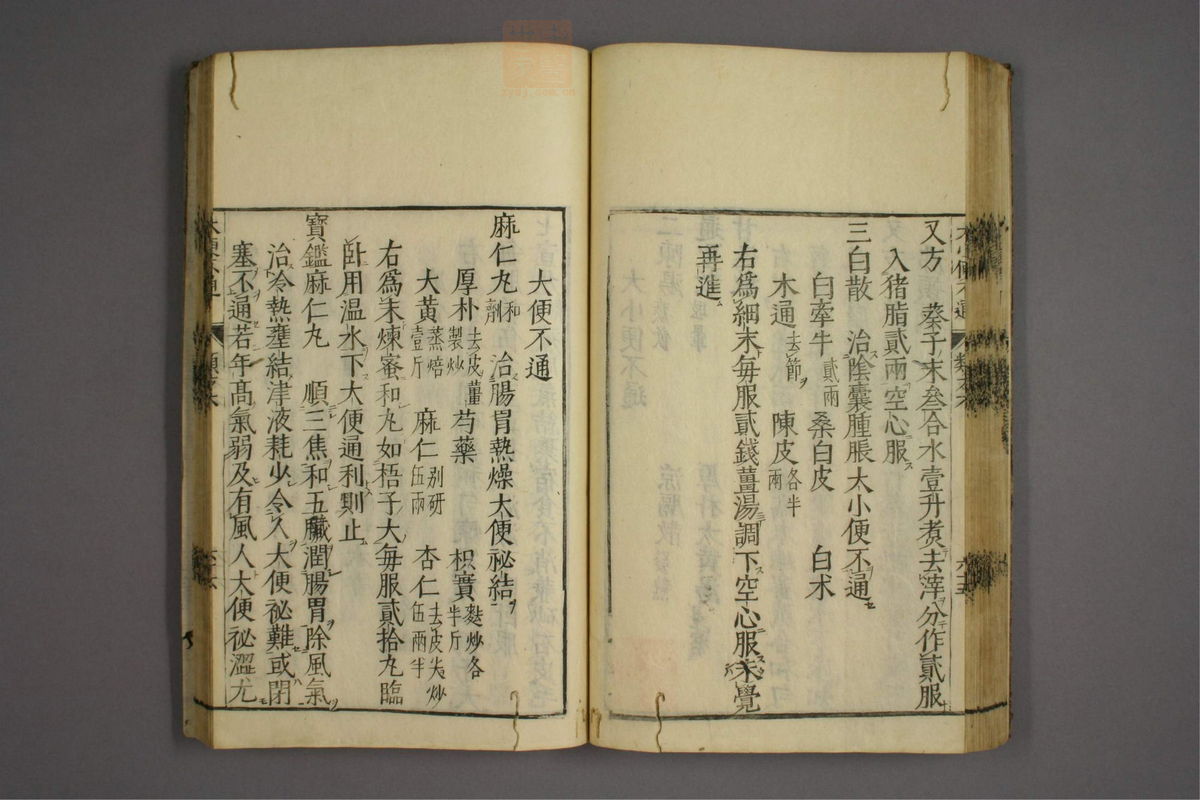 又方　蓁子末叁合水壹升煮去滓分作貳服
入猪脂貳兩空心服
三白散　治陰囊腫脹大小便不通
白牽牛貳兩　桑白皮　白术
木通去節　陳皮各半兩
右爲細末每服貳錢薑湯調下空心服未覺
再進
大便不通
麻仁丸和劑　治腸胃熱燥大便祕結
厚朴去皮薑製炒　芍藥　枳實麩炒各半斤
大黄蒸焙壹斤　麻仁别研伍兩　杏仁去皮尖炒伍兩半
右爲末煉蜜和丸如梧子大每服貳拾丸臨
卧用温水下大便通利則止
寶鑑麻仁丸　順三焦和五臟潤腸胃除風氣
治冷熱壅結津液耗少令人大便祕難或閉
塞不通若年高氣弱及有風人大便祕澀尤